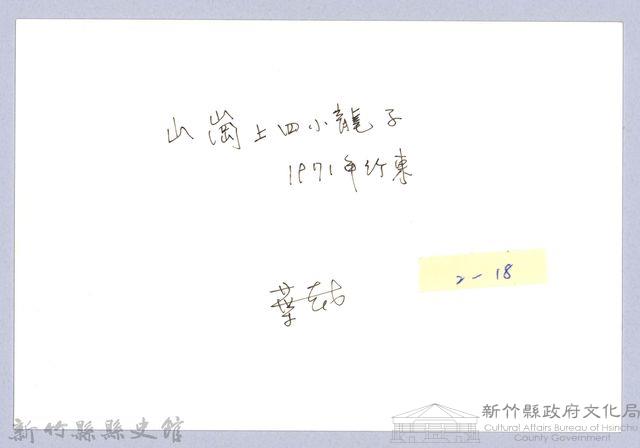 山崗上四小龍子
1971年竹東
2-18
葉
新竹縣縣史館
新竹縣政府文化局
Cultural Affairs Bureau of Hsinchu
County Government